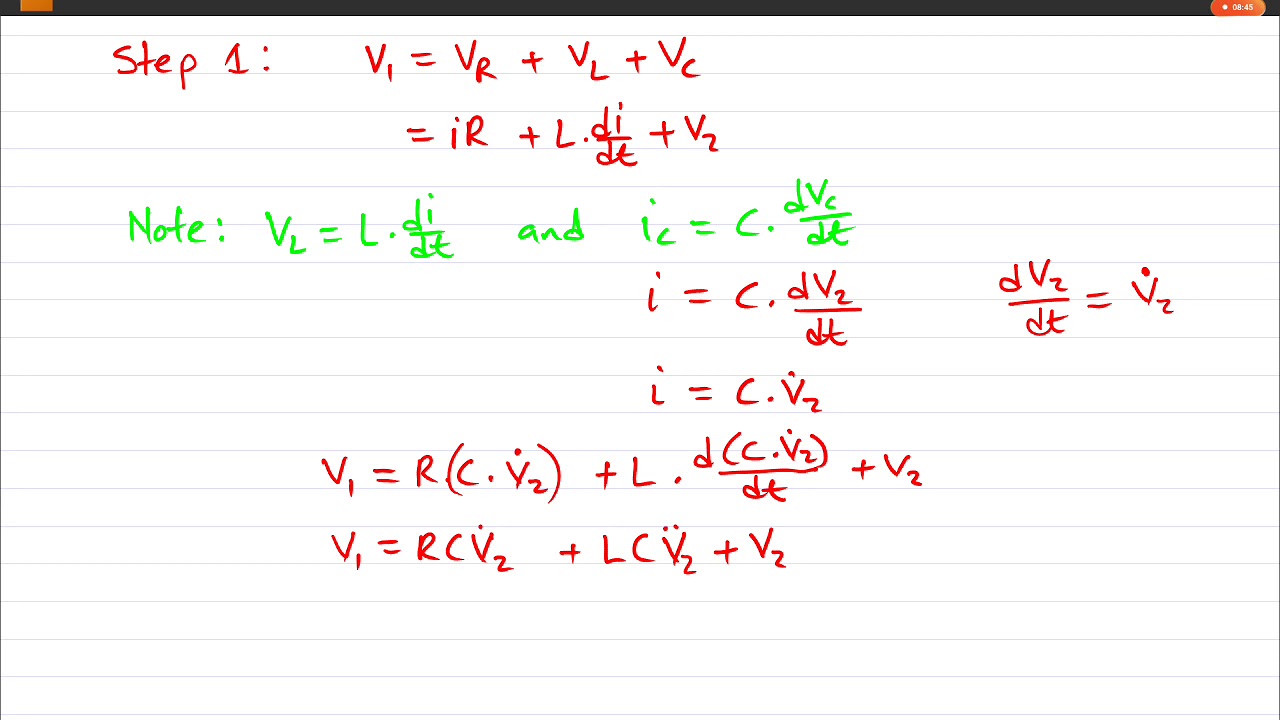 08:45
Step 1: V₁ = V_R + V_L + V_C
= iR + L·di/dt + V₂
Note: V_L = L·di/dt and i_C = C·dV_C/dt
i = C·dV₂/dt dV₂/dt = V̇₂
i = C·V̇₂
V₁ = R(C·V̇₂) + L·d(C·V̇₂)/dt + V₂
V₁ = RCV̇₂ + LCV̈₂ + V₂